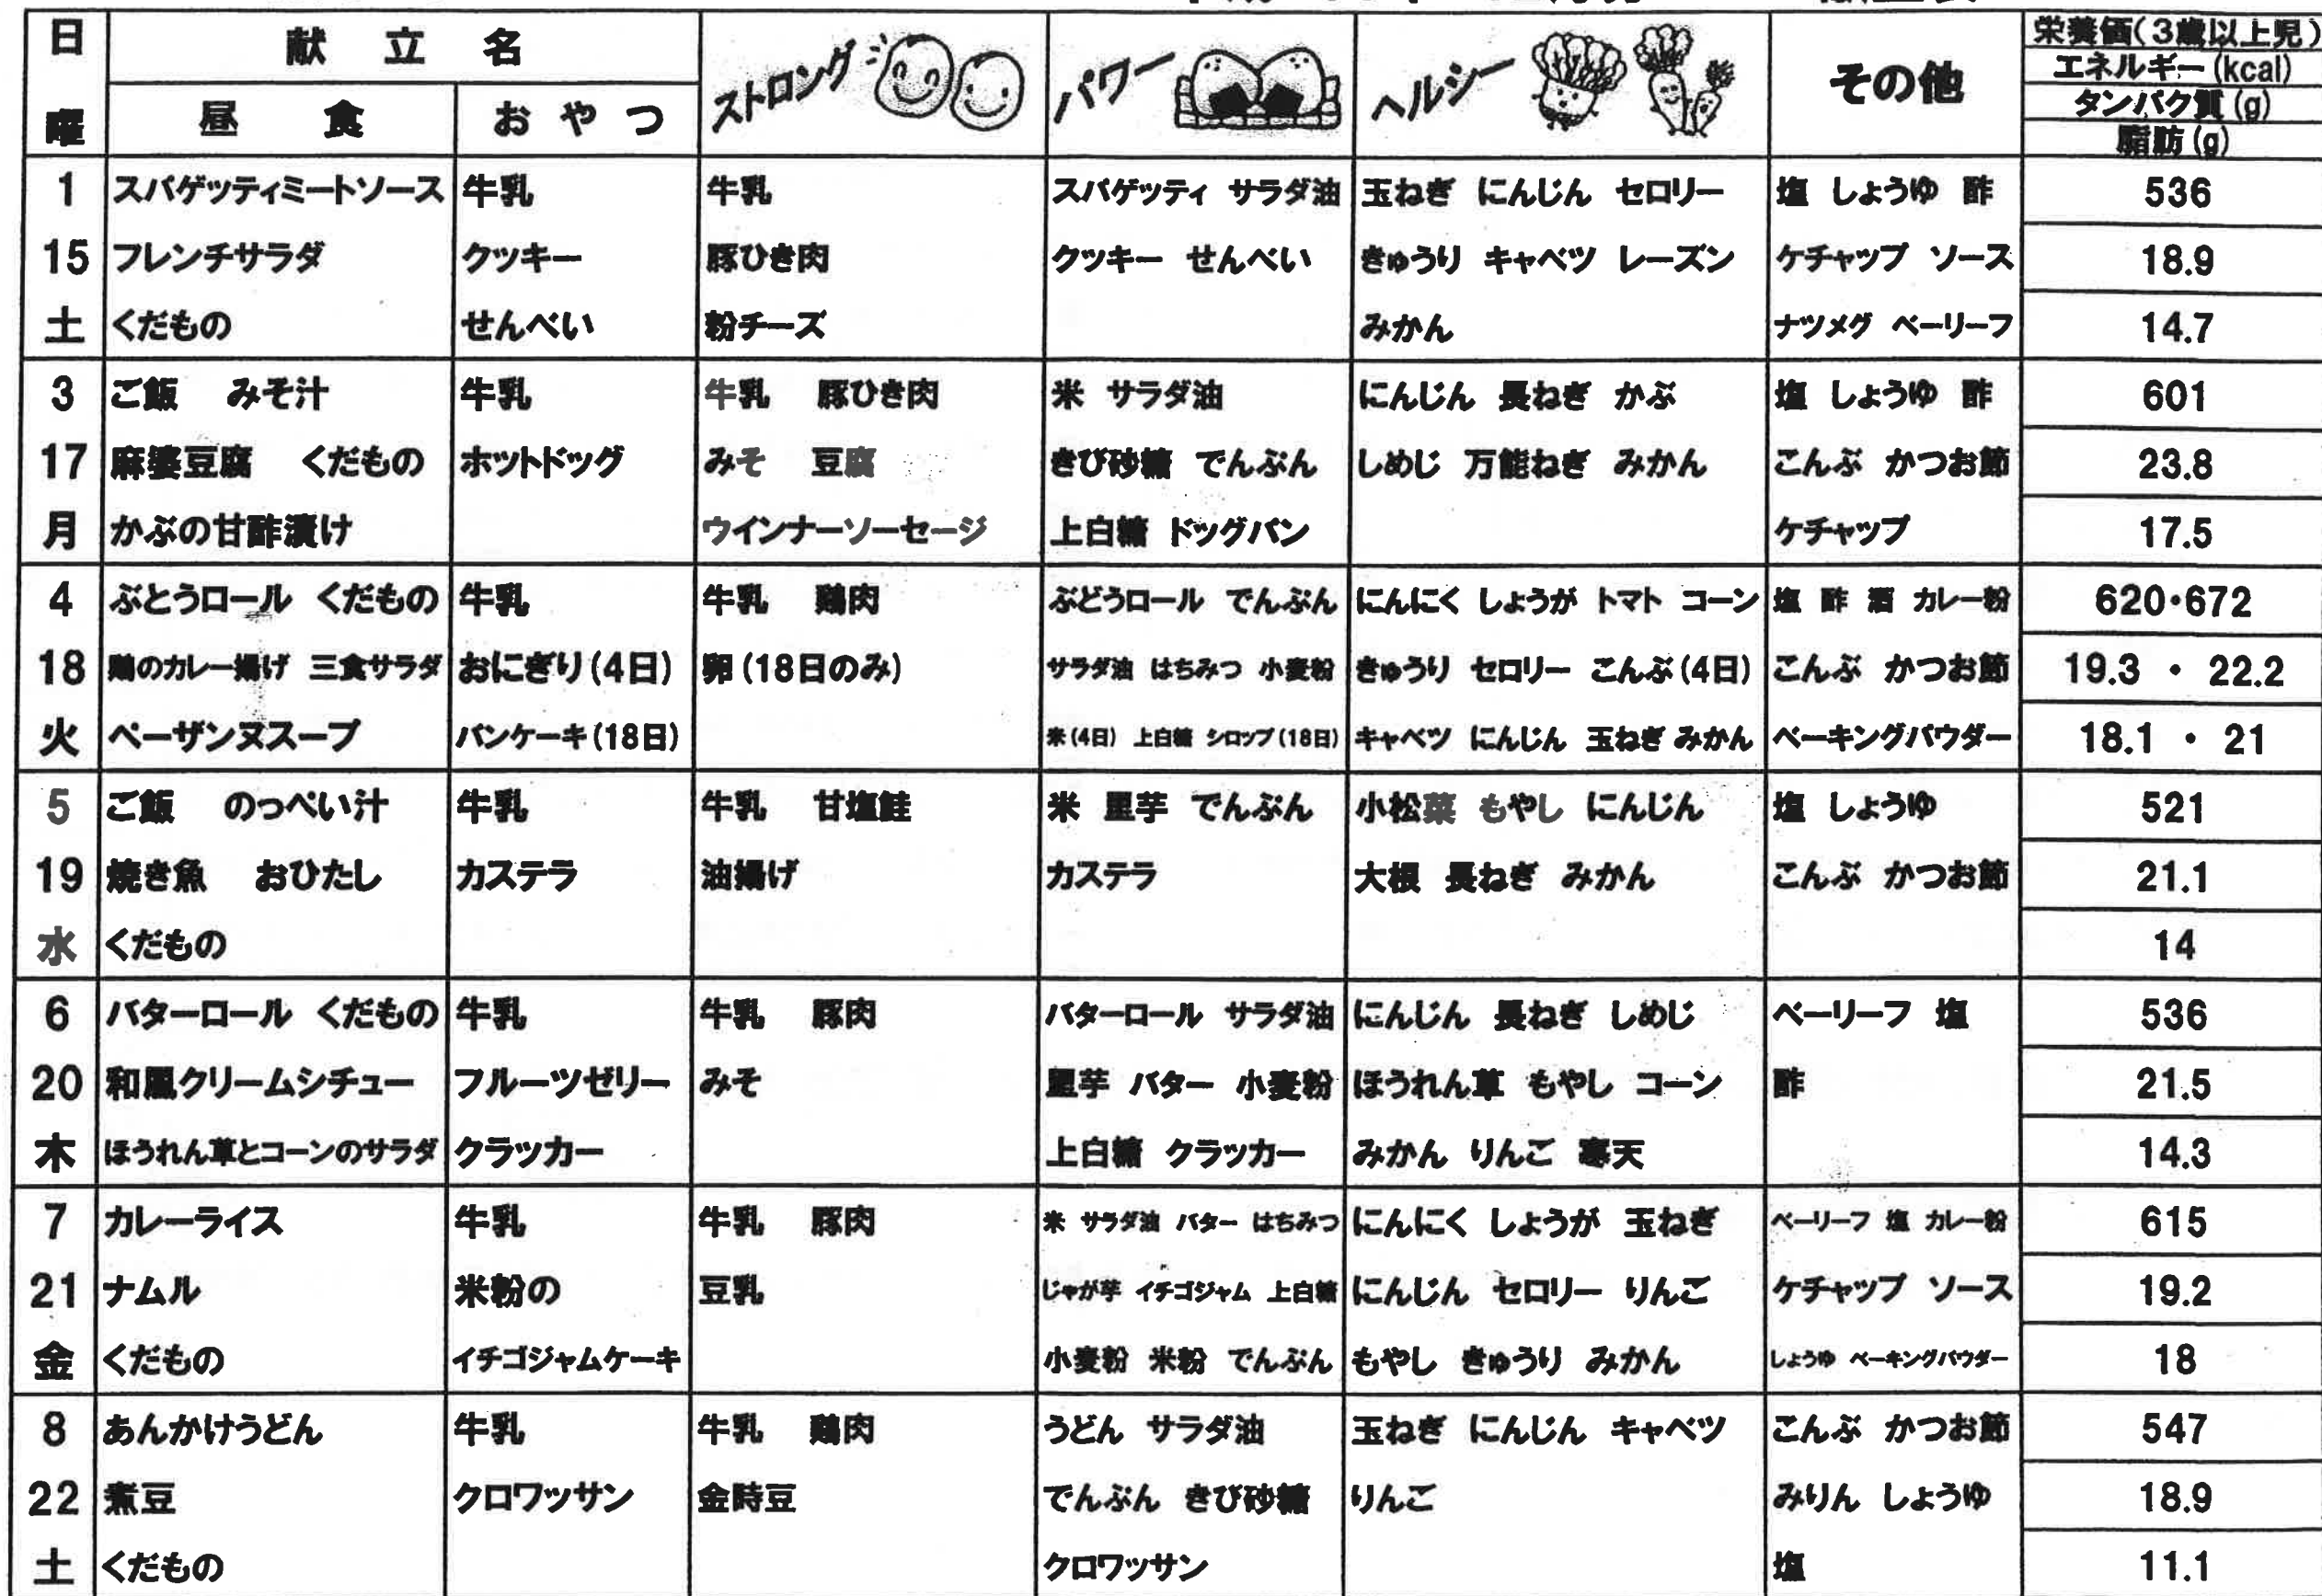 日
曜
献 立 名
昼 食
お や つ
ストロング
パワー
ヘルシー
その他
栄養価(3歳以上児)
エネルギー(kcal)
タンパク質(g)
脂肪(g)
1 スパゲッティミートソース 牛乳 牛乳 スパゲッティ サラダ油 玉ねぎ にんじん セロリー 塩 しょうゆ 酢 536
15 フレンチサラダ クッキー 豚ひき肉 クッキー せんべい きゅうり キャベツ レーズン ケチャップ ソース 18.9
土 くだもの せんべい 粉チーズ みかん ナツメグ ベーリーフ 14.7
3 ご飯 みそ汁 牛乳 牛乳 豚ひき肉 米 サラダ油 にんじん 長ねぎ かぶ 塩 しょうゆ 酢 601
17 麻婆豆腐 くだもの ホットドッグ みそ 豆腐 きび砂糖 でんぷん しめじ 万能ねぎ みかん こんぶ かつお節 23.8
月 かぶの甘酢漬け ウインナーソーセージ 上白糖 ドッグパン ケチャップ 17.5
4 ぶとうロール くだもの 牛乳 牛乳 鶏肉 ぶどうロール でんぷん にんにく しょうが トマト コーン 塩 酢 酒 カレー粉 620・672
18 鶏のカレー揚げ 三食サラダ おにぎり(4日) 卵(18日のみ) サラダ油 はちみつ 小麦粉 きゅうり セロリー こんぶ(4日) こんぶ かつお節 19.3 ・ 22.2
火 ペーザンヌスープ パンケーキ(18日) 米(4日) 上白糖 シロップ(18日) キャベツ にんじん 玉ねぎ みかん ベーキングパウダー 18.1 ・ 21
5 ご飯 のっぺい汁 牛乳 牛乳 甘塩鮭 米 里芋 でんぷん 小松菜 もやし にんじん 塩 しょうゆ 521
19 焼き魚 おひたし カステラ 油揚げ カステラ 大根 長ねぎ みかん こんぶ かつお節 21.1
水 くだもの 14
6 バターロール くだもの 牛乳 牛乳 豚肉 バターロール サラダ油 にんじん 長ねぎ しめじ ベーリーフ 塩 536
20 和風クリームシチュー フルーツゼリー みそ 里芋 バター 小麦粉 ほうれん草 もやし コーン 酢 21.5
木 ほうれん草とコーンのサラダ クラッカー 上白糖 クラッカー みかん りんご 寒天 14.3
7 カレーライス 牛乳 牛乳 豚肉 米 サラダ油 バター はちみつ にんにく しょうが 玉ねぎ ベーリーフ 塩 カレー粉 615
21 ナムル 米粉の 豆乳 じゃが芋 イチゴジャム 上白糖 にんじん セロリー りんご ケチャップ ソース 19.2
金 くだもの イチゴジャムケーキ 小麦粉 米粉 でんぷん もやし きゅうり みかん しょうゆ ベーキングパウダー 18
8 あんかけうどん 牛乳 牛乳 鶏肉 うどん サラダ油 玉ねぎ にんじん キャベツ こんぶ かつお節 547
22 煮豆 クロワッサン 金時豆 でんぷん きび砂糖 りんご みりん しょうゆ 18.9
土 くだもの クロワッサン 塩 11.1